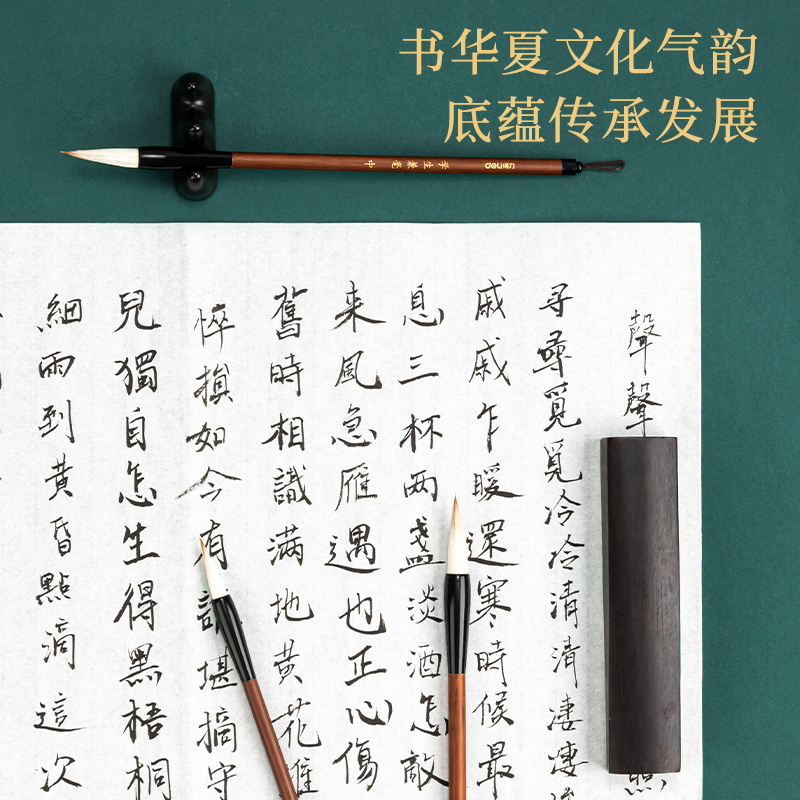 书华夏文化气韵
底蕴传承发展
学生兼毫 中
聲聲
尋尋覓覓冷冷清清淒淒
戚戚乍暖還寒時候最
息三杯两盞淡酒怎敵
来風急雁過也正心傷
舊時相識滿地黄花堆
悴損如今有誰堪摘守
兒獨自怎生得黑梧桐
細雨到黄昏點滴這次